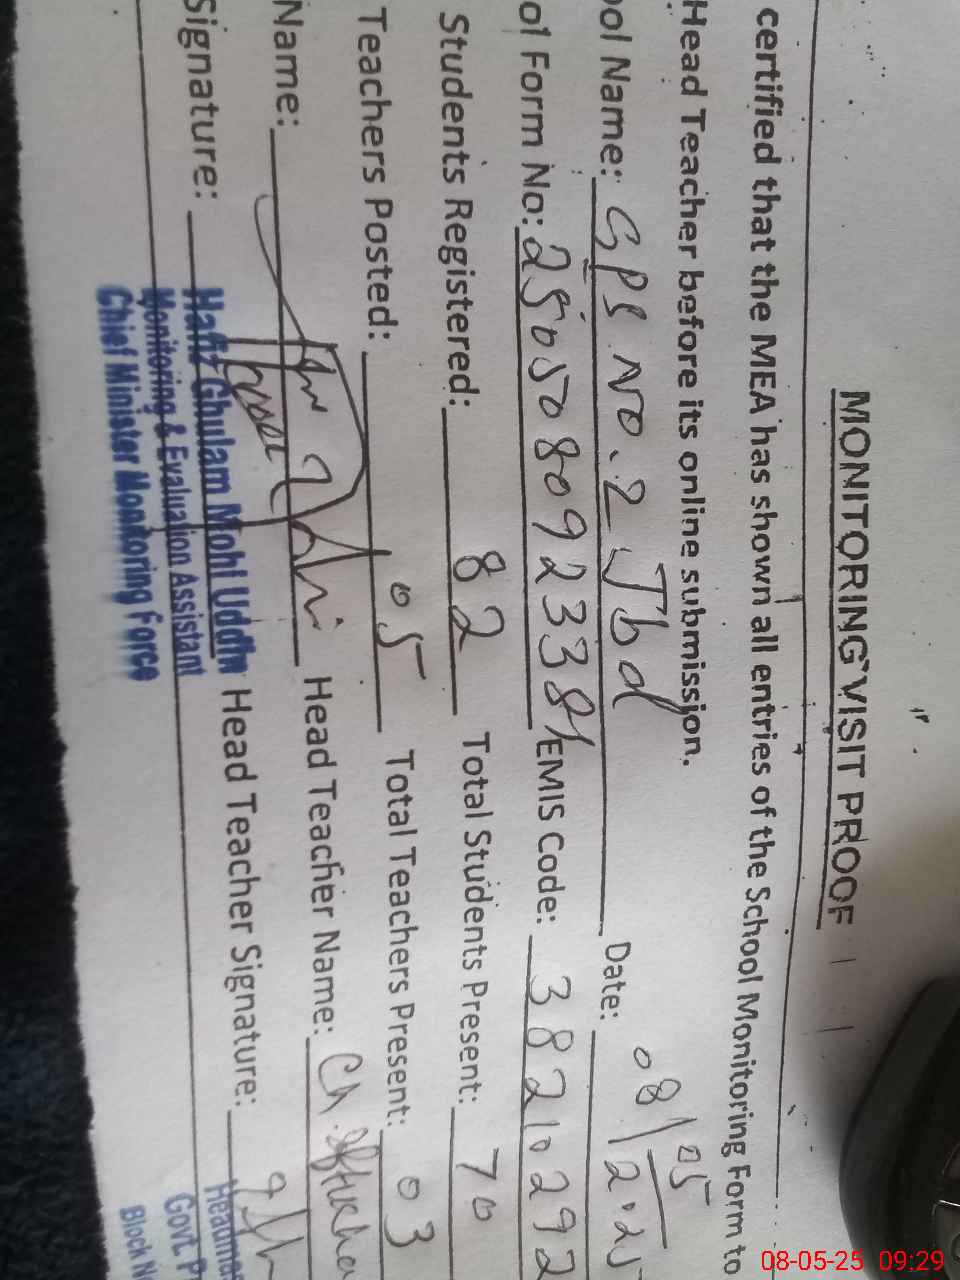 MONITORING VISIT PROOF
certified that the MEA has shown all entries of the School Monitoring Form to
Head Teacher before its online submission.
ool Name: GPS NO.2 Jbd Date: 08/05/2025
ol Form No: 2505080923381 EMIS Code: 38210292
Students Registered: 82 Total Students Present: 70
Teachers Posted: 05 Total Teachers Present: 03
Name: Head Teacher Name: Ch.
Signature: Head Teacher Signature:
Hafiz Ghulam Mohi Uddin
Monitoring & Evaluation Assistant
Chief Minister Monitoring Force
Headmas
Govt. P
Block N
08-05-25 09:29